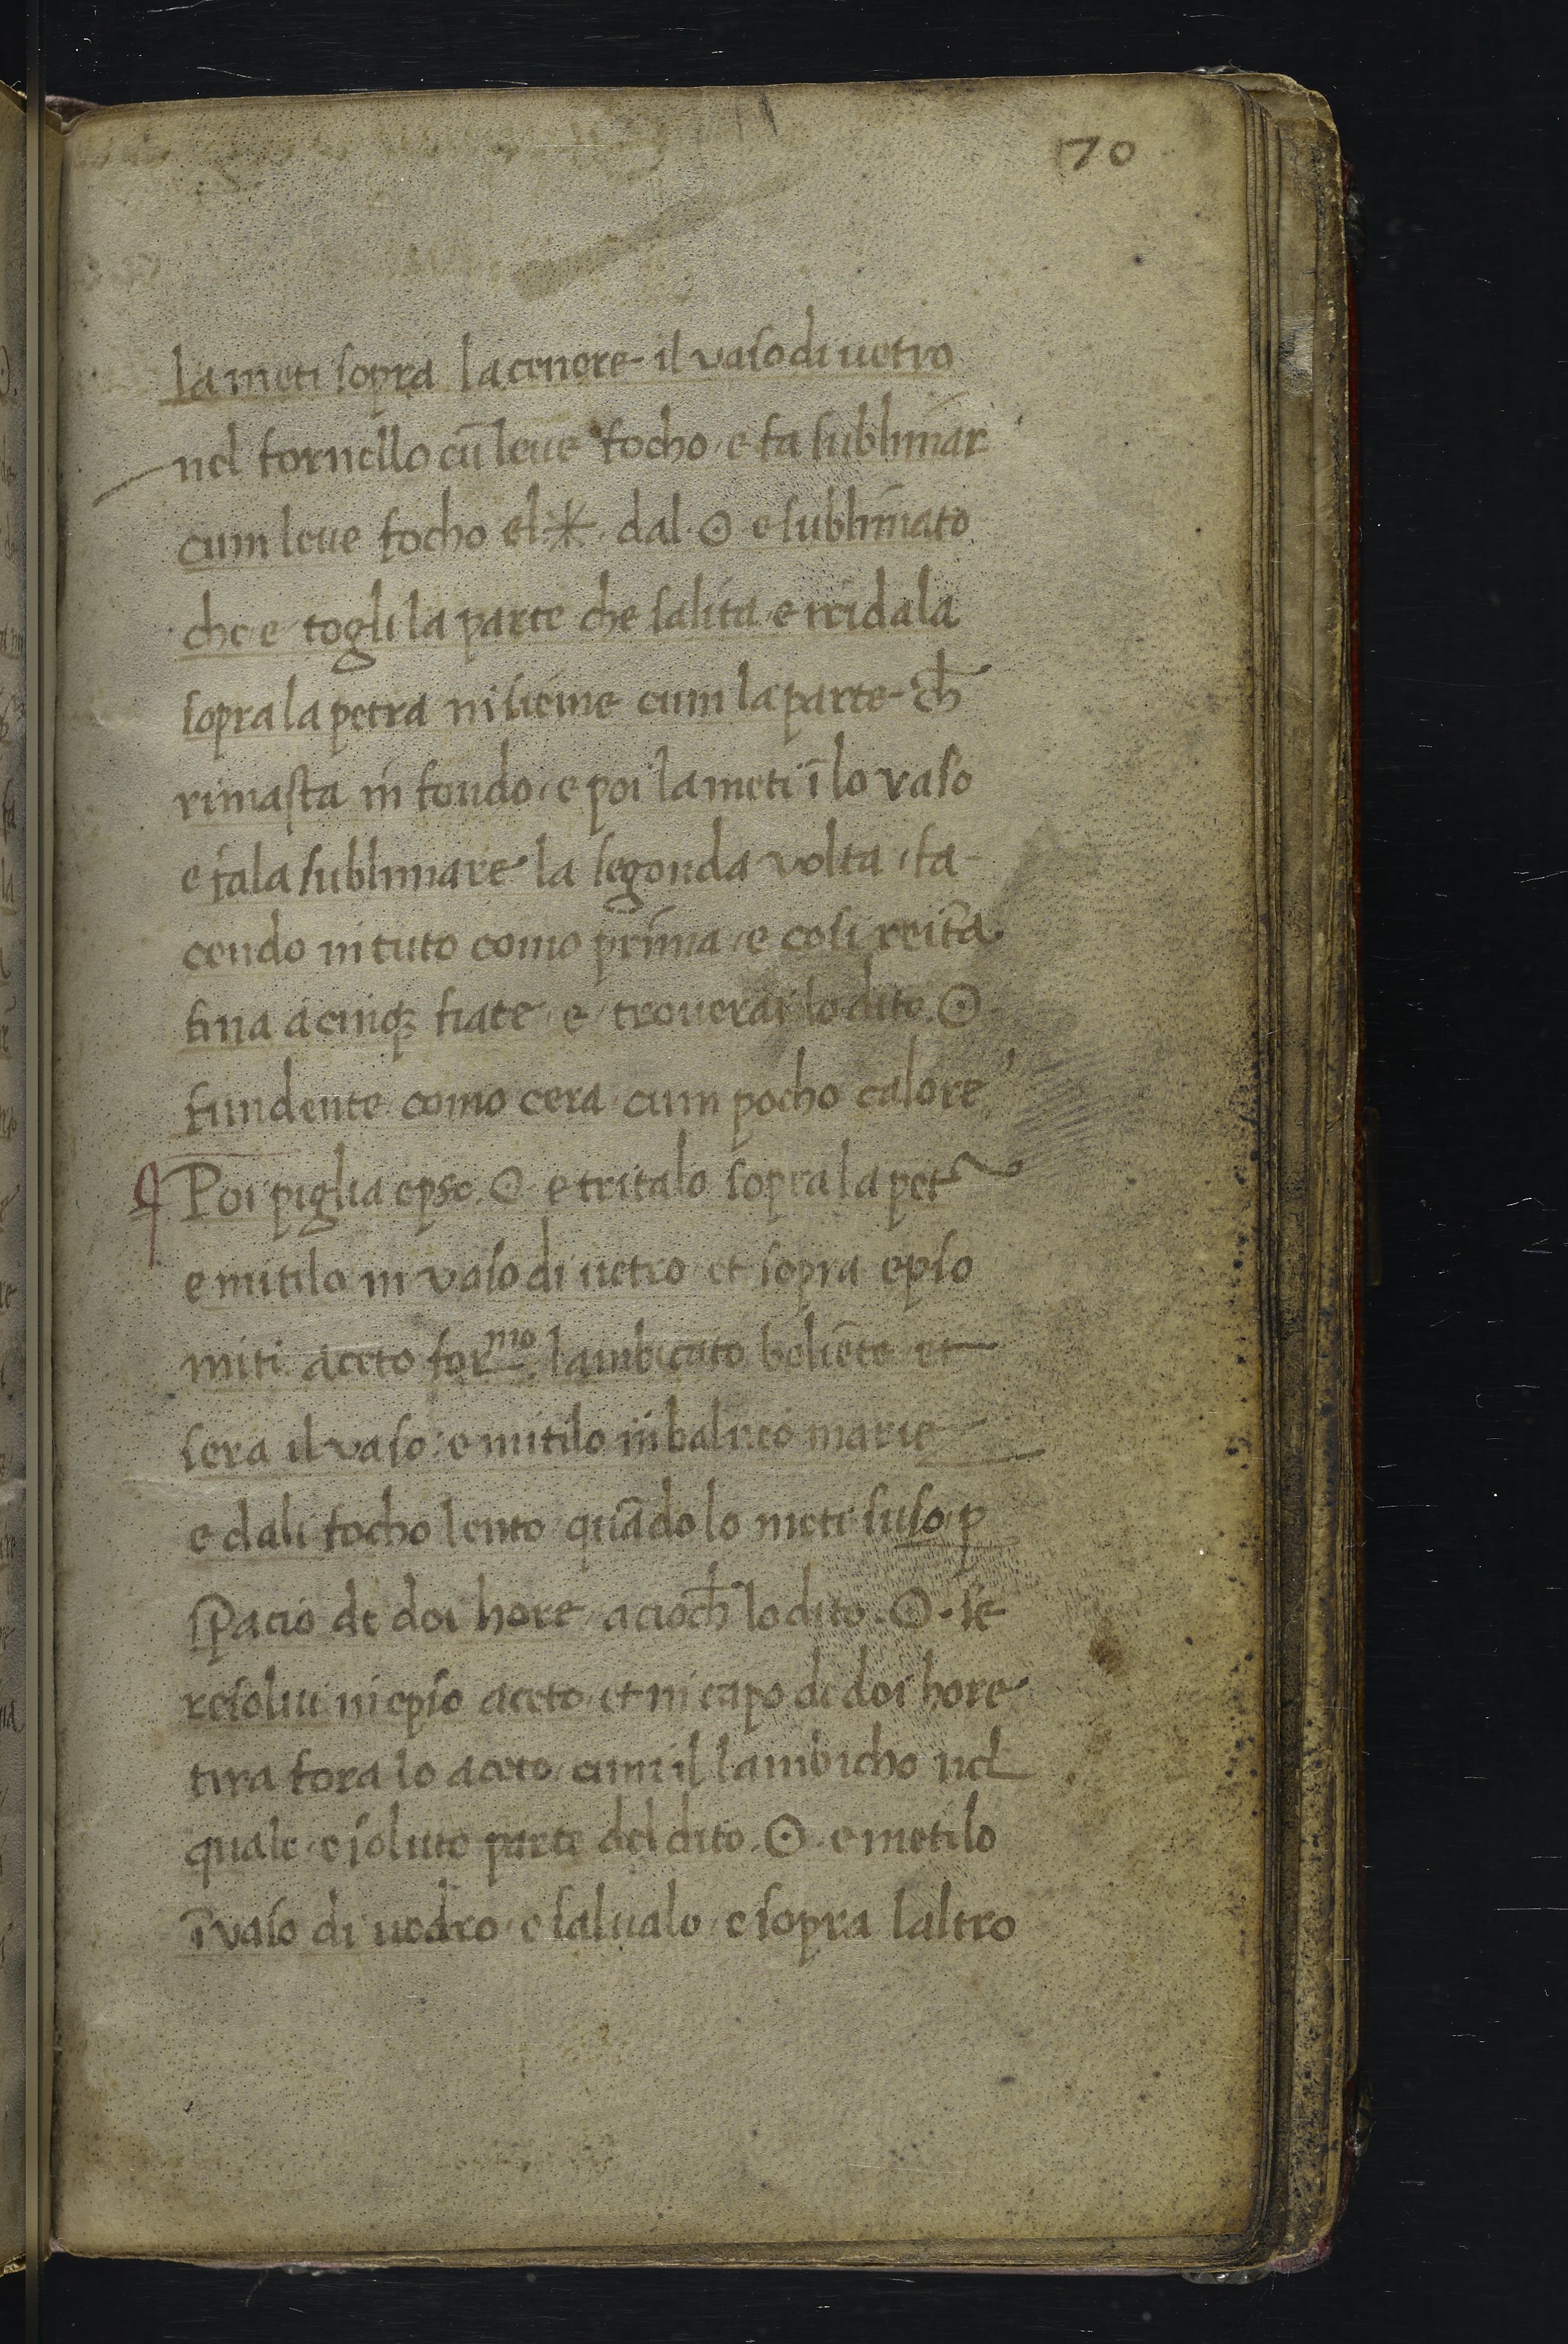 70
la meti sopra la cenere il vaso di uetro
nel fornello cū leue focho e fa sublimar
cum leue focho el ✳ dal ☉ e sublimato
che e togli la parte che salita e tridala
sopra la petra insieme cum la parte ch̄
rimasta in fondo e poi la meti ī lo vaso
e fala sublimare la segonda volta fa-
cendo in tuto como prima e cosi reit̄a
fina a cinqȝ fiate e trouerai lo dito ☉
fundente como cera cum pocho calore
Poi piglia epso ☉ e tritalo sopra la pet~
e mitilo in vaso di uetro et sopra epso
miti aceto for^mo lambicato boliēte et
sera il vaso e mitilo in balneo marie
e dali focho lento quādo lo meti suso p̱
sp̄acio de doi hore acioch̄ lo dito ☉ se
resolui in epso aceto et in capo de doi hore
tira fora lo aceto cum il lambicho nel
quale e soluto parte del dito ☉ e metilo
ī vaso di uedro e salualo e sopra laltro